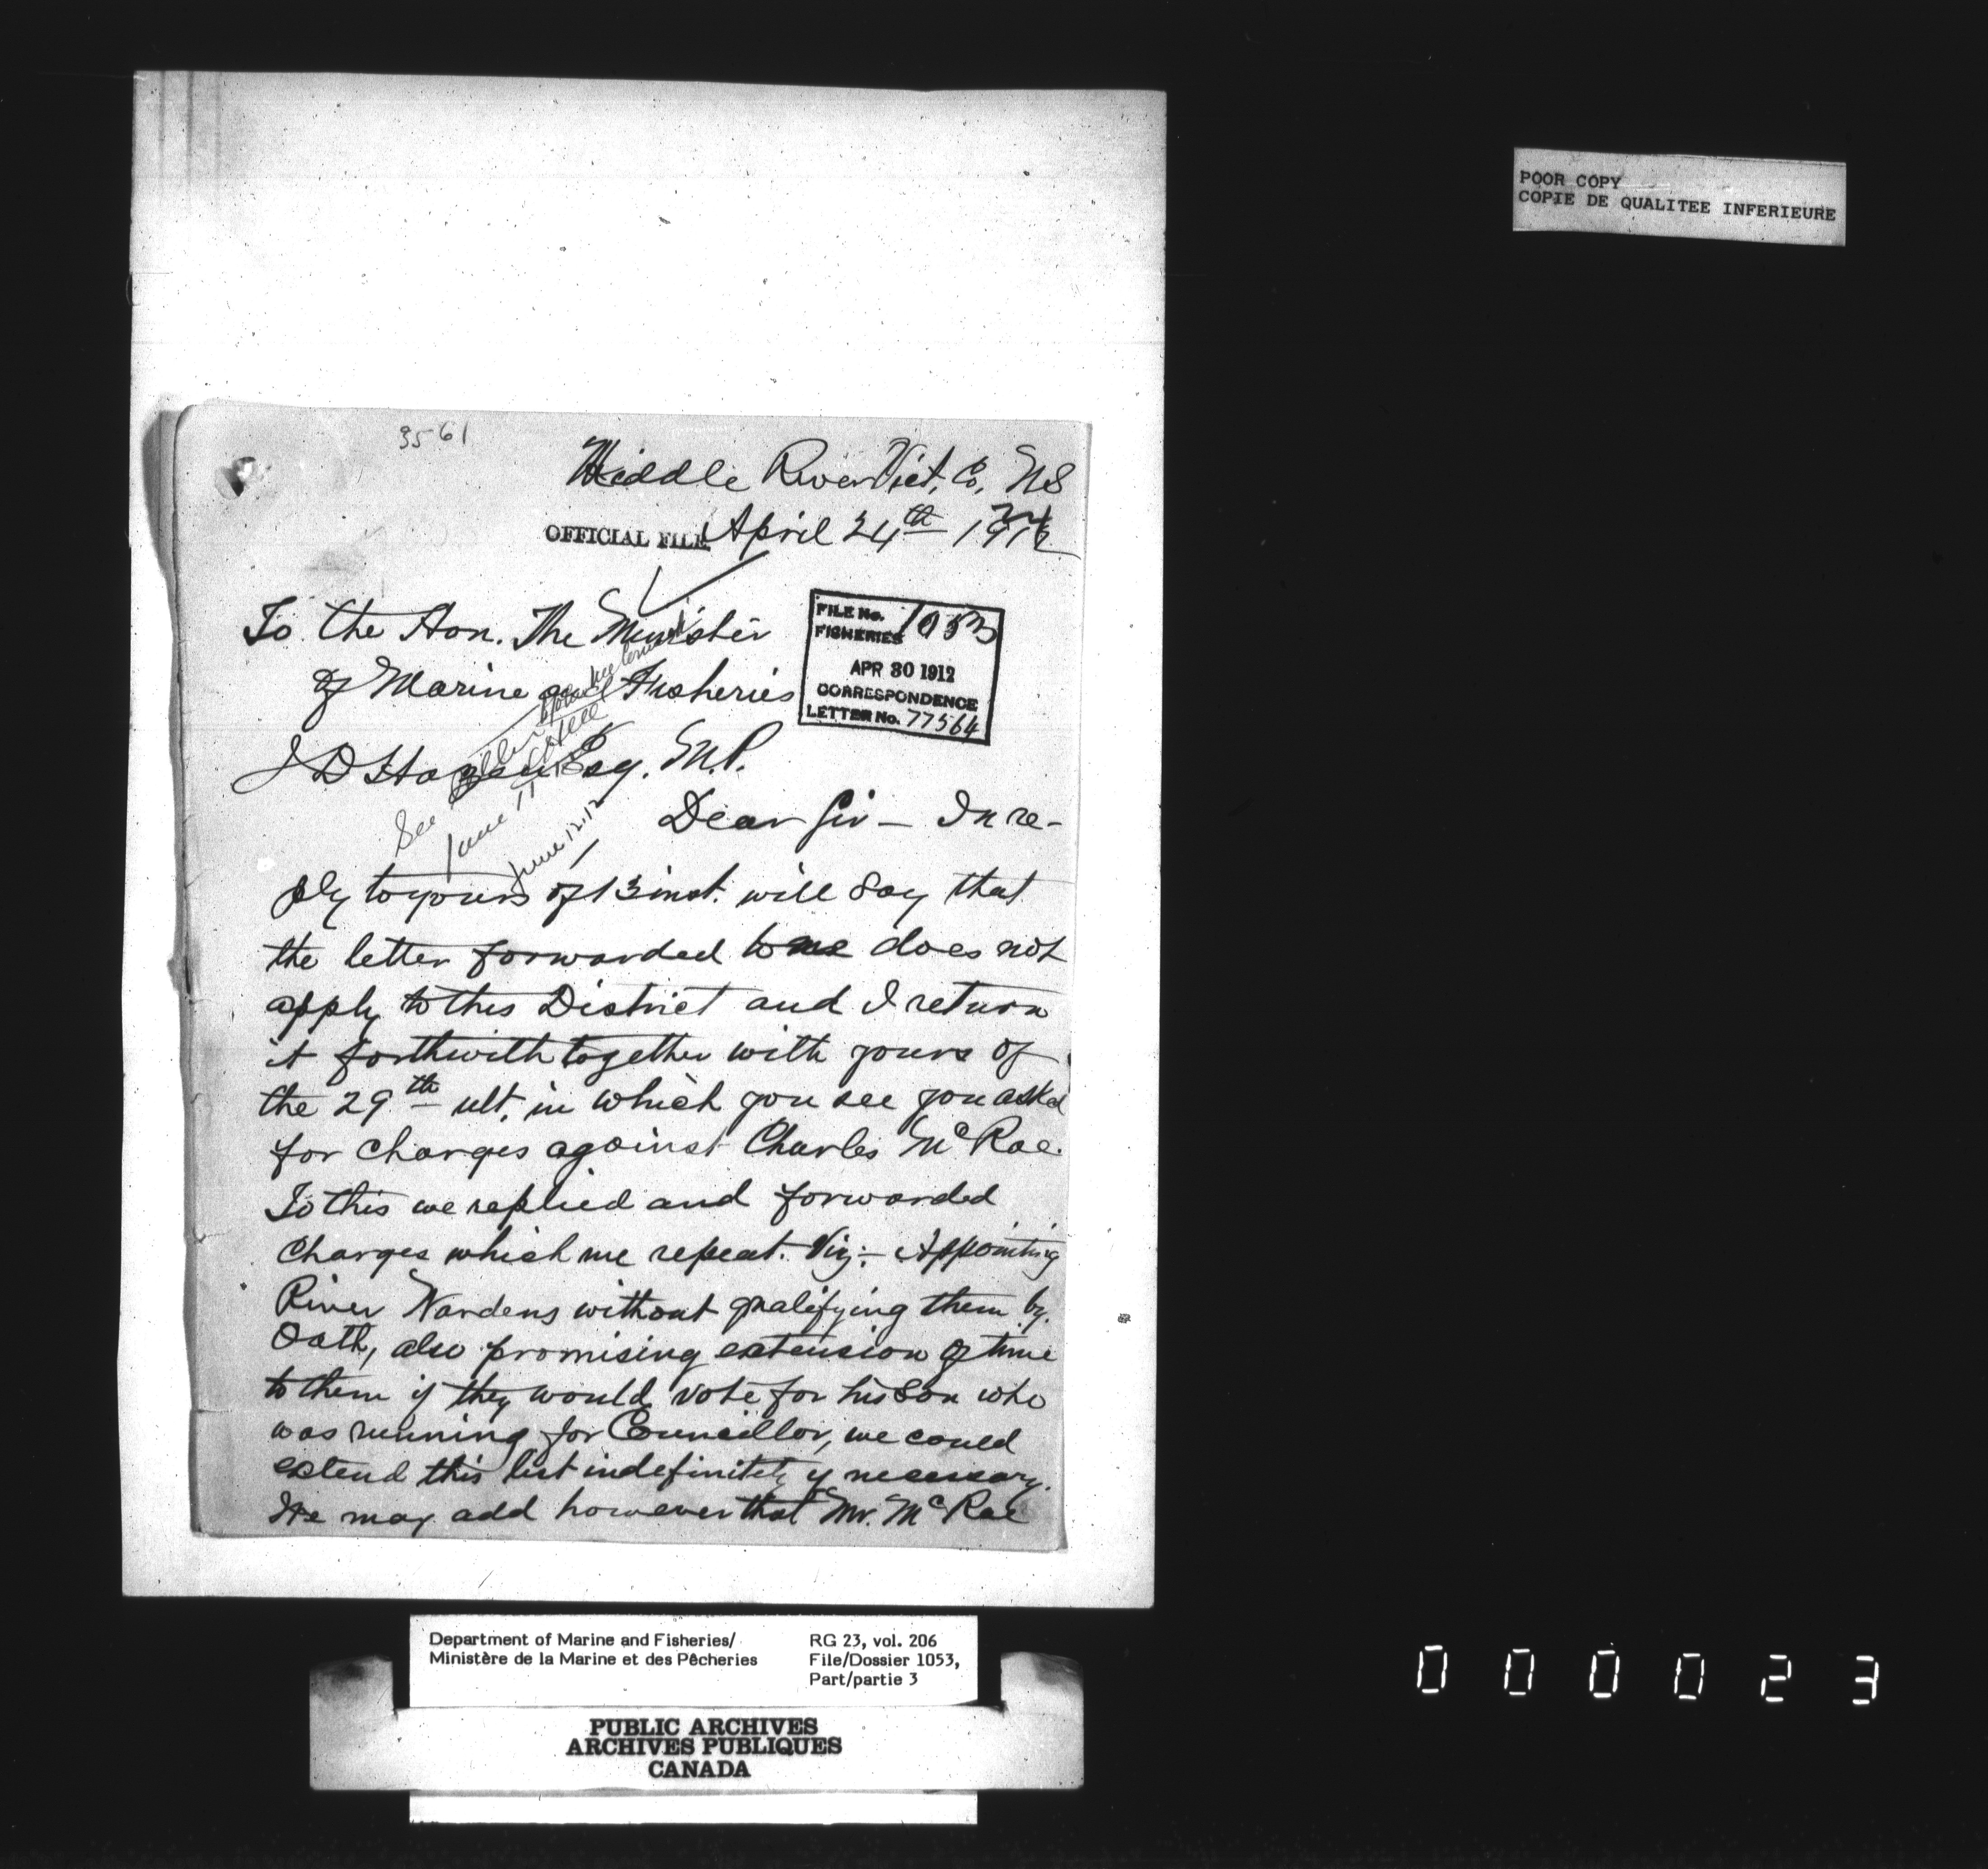 POOR COPY
COPIE DE QUALITEE INFERIEURE
3561
Middle River Vict. Co. NS
OFFICIAL FILE April 24th 1912
To the Hon. The Minister
of Marine and Fisheries
FILE No. 1053
FISHERIES
APR 30 1912
CORRESPONDENCE
LETTER No. 77564
J D Hazen Esq. M.P.
See
June 11
June 12.12
Dear Sir — In re-
ply to yours of 13 inst. will say that
the letter forwarded to me does not
apply to this District and I return
it forthwith together with yours of
the 29th ult, in which you see you asked
for charges against Charles McRae.
To this we replied and forwarded
charges which we repeat. Viz:- Appointing
River Wardens without qualifying them by
Oath, also promising extension of time
to them if they would vote for his son who
was running for Councillor, we could
extend this list indefinitely if necessary.
We may add however that Mr. McRae
Department of Marine and Fisheries/
Ministère de la Marine et des Pêcheries
RG 23, vol. 206
File/Dossier 1053,
Part/partie 3
PUBLIC ARCHIVES
ARCHIVES PUBLIQUES
CANADA
000023